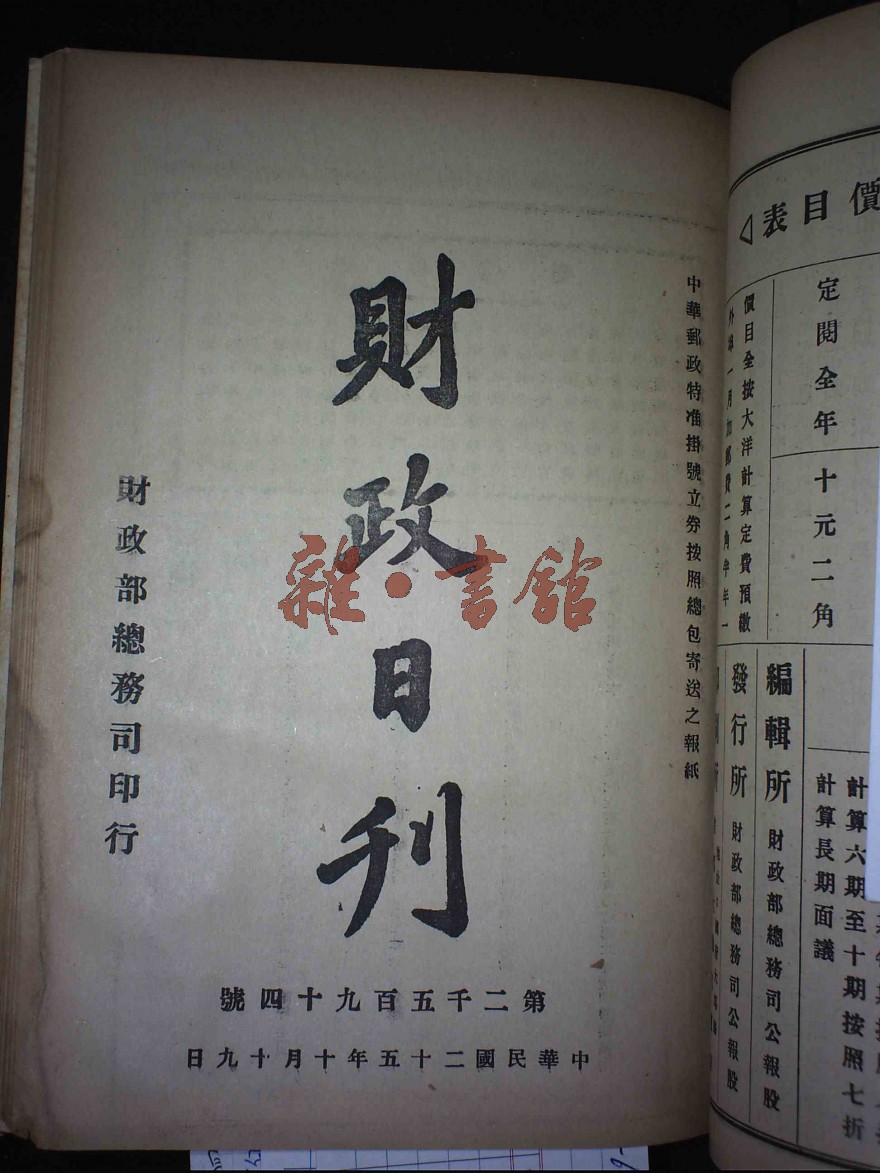 中華郵政特准掛號立券按照總包寄送之報紙
財政日刊
財政部總務司印行
第二千五百九十四號
中華民國二十五年十月十九日
價目表◁
定閱全年
十元二角
價目全按大洋計算定費預繳
外埠一月加郵費二角半年一
計算六期至十期按照七折
計算長期面議
編輯所 財政部總務司公報股
發行所 財政部總務司公報股
雜·書館